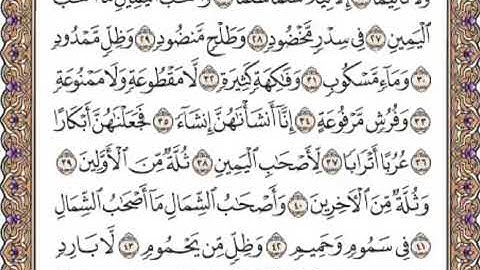 ٱلْيَمِينِ ٢٧ فِى سِدْرٍ مَّخْضُودٍ ٢٨ وَطَلْحٍ مَّنضُودٍ ٢٩ وَظِلٍّ مَّمْدُودٍ
٣٠ وَمَآءٍ مَّسْكُوبٍ ٣١ وَفَٰكِهَةٍ كَثِيرَةٍ ٣٢ لَّا مَقْطُوعَةٍ وَلَا مَمْنُوعَةٍ
٣٣ وَفُرُشٍ مَّرْفُوعَةٍ ٣٤ إِنَّآ أَنشَأْنَٰهُنَّ إِنشَآءً ٣٥ فَجَعَلْنَٰهُنَّ أَبْكَارًا
٣٦ عُرُبًا أَتْرَابًا ٣٧ لِّأَصْحَٰبِ ٱلْيَمِينِ ٣٨ ثُلَّةٌ مِّنَ ٱلْأَوَّلِينَ ٣٩
وَثُلَّةٌ مِّنَ ٱلْءَاخِرِينَ ٤٠ وَأَصْحَٰبُ ٱلشِّمَالِ مَآ أَصْحَٰبُ ٱلشِّمَالِ
٤١ فِى سَمُومٍ وَحَمِيمٍ ٤٢ وَظِلٍّ مِّن يَحْمُومٍ ٤٣ لَّا بَارِدٍ